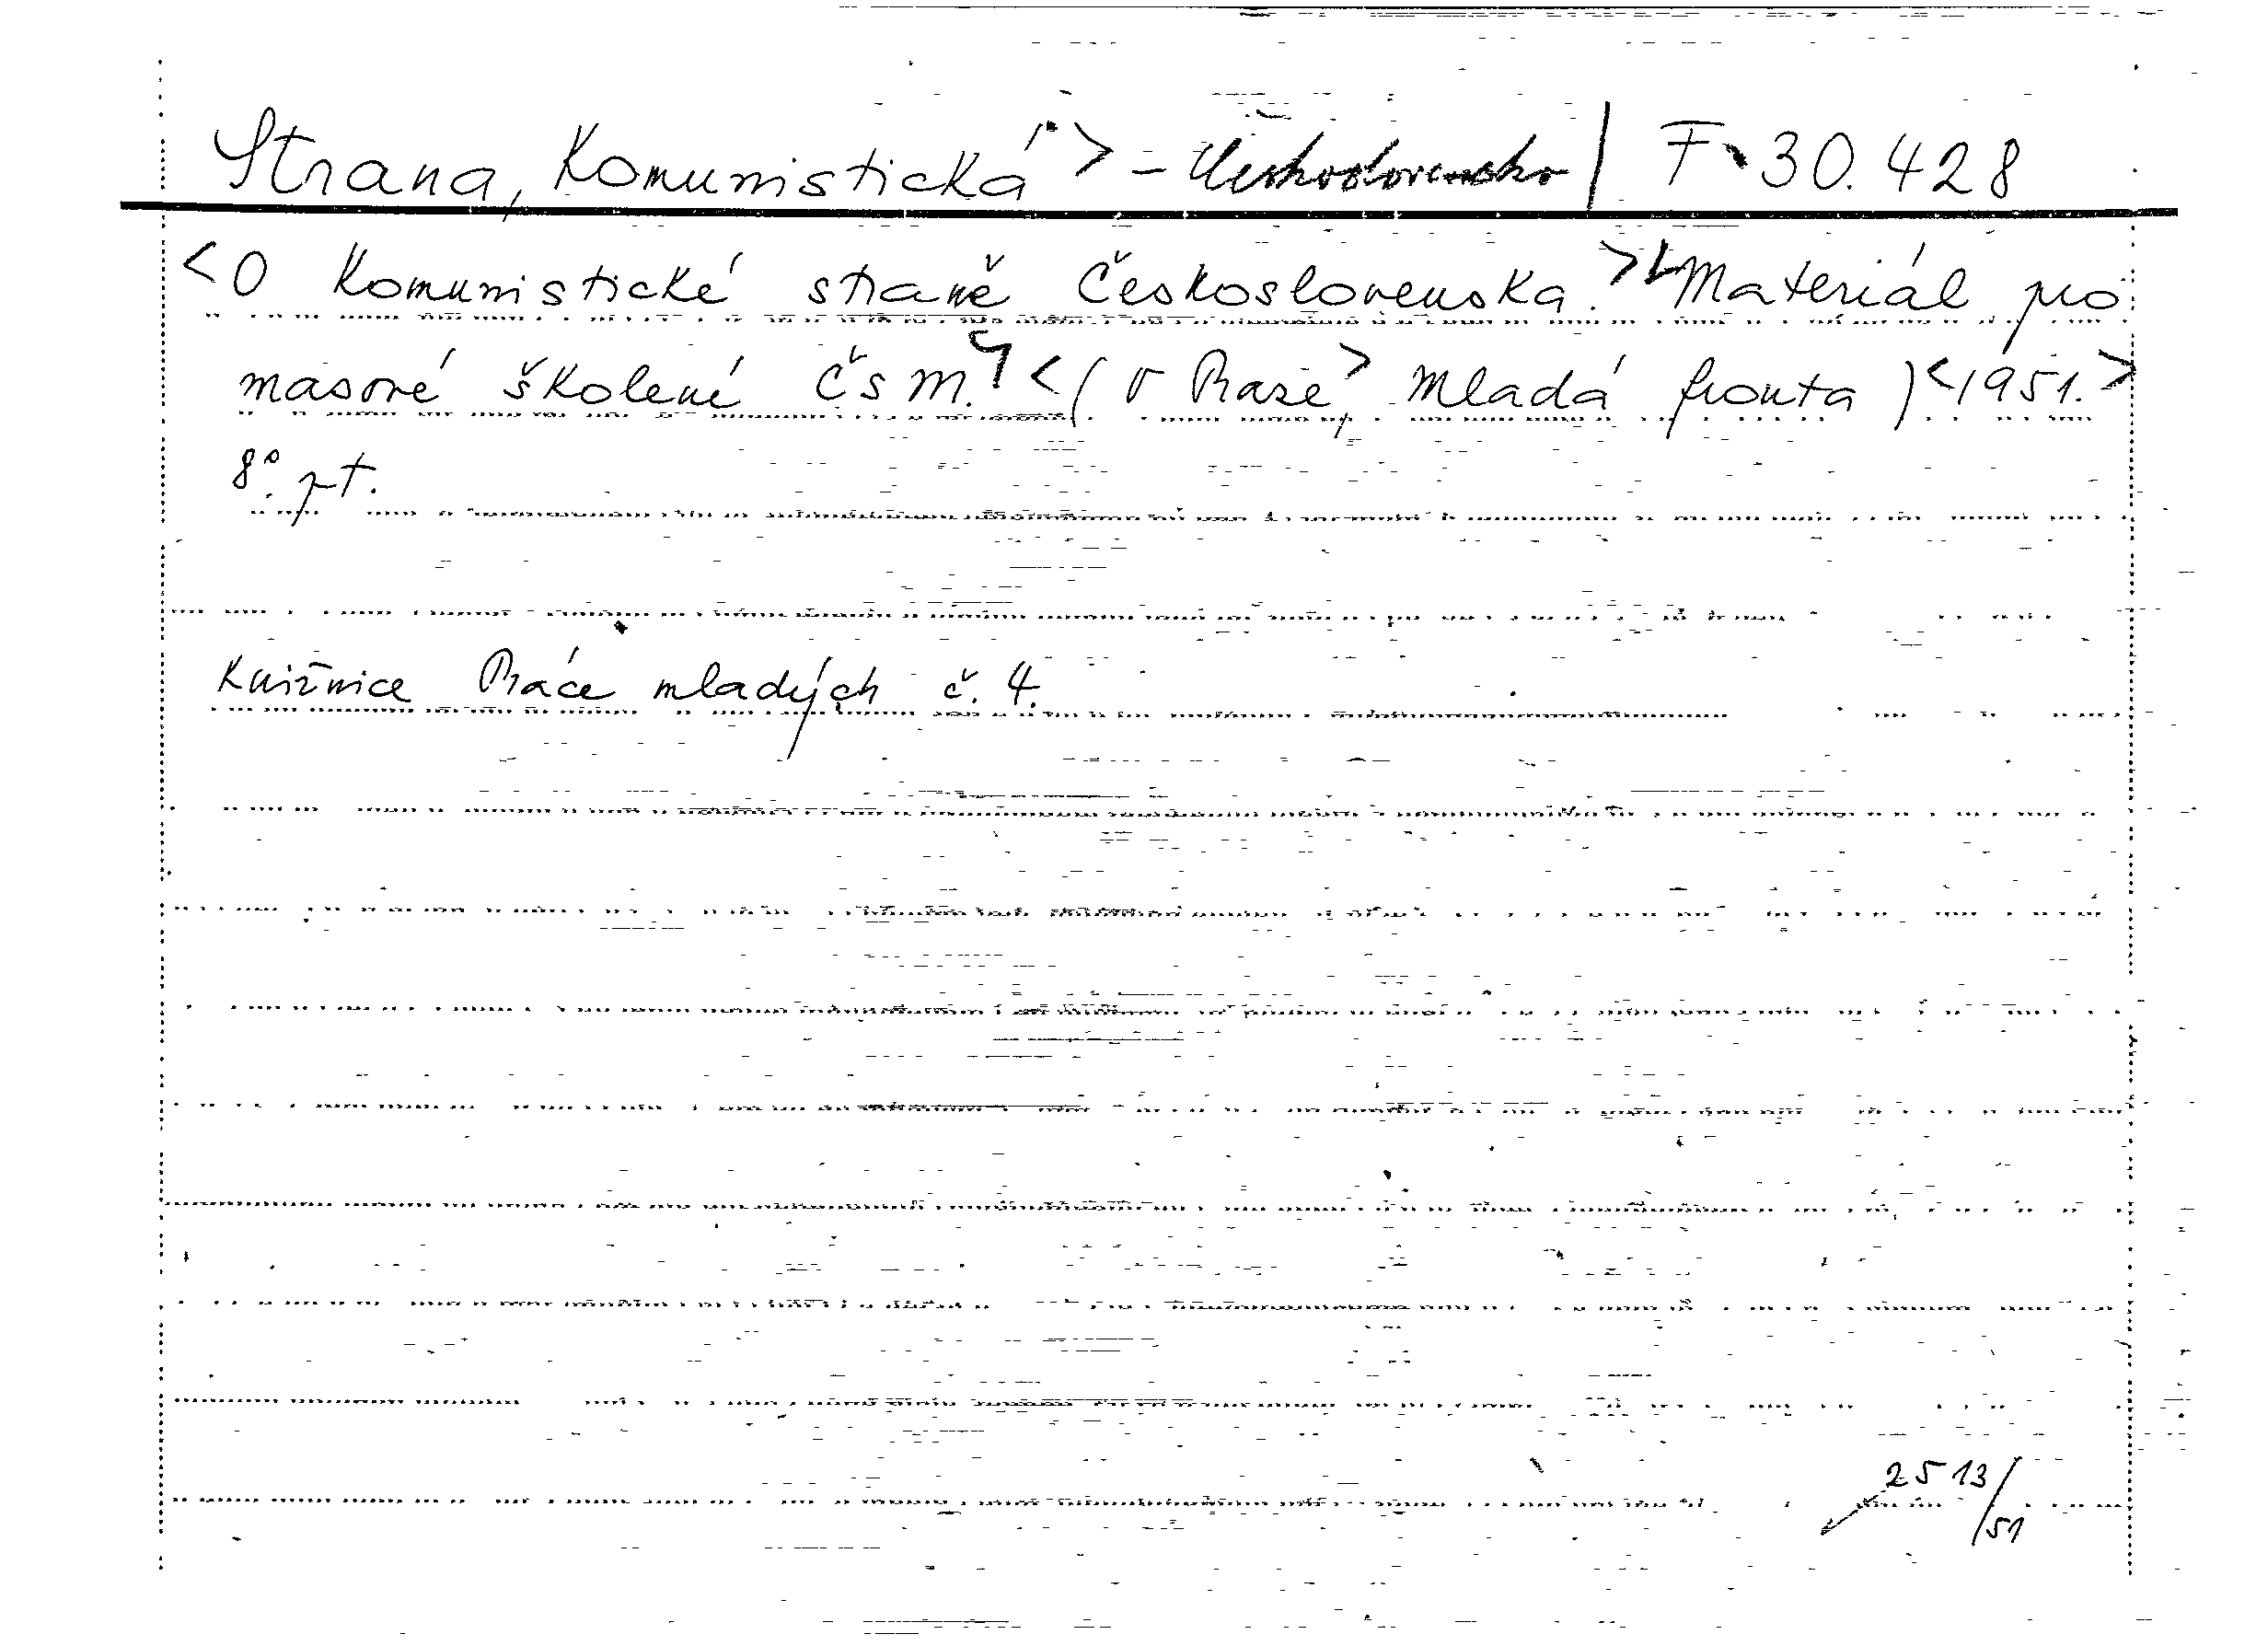 Strana, Komunistická > - Československo | F 30.428
< O Komunistické straně Československa. > Materiál pro
masové školené ČSM. < (V Praze, > Mladá fronta) < 1951. >
8°. pt.
Knižnice Práce mladých č. 4.
2513/51